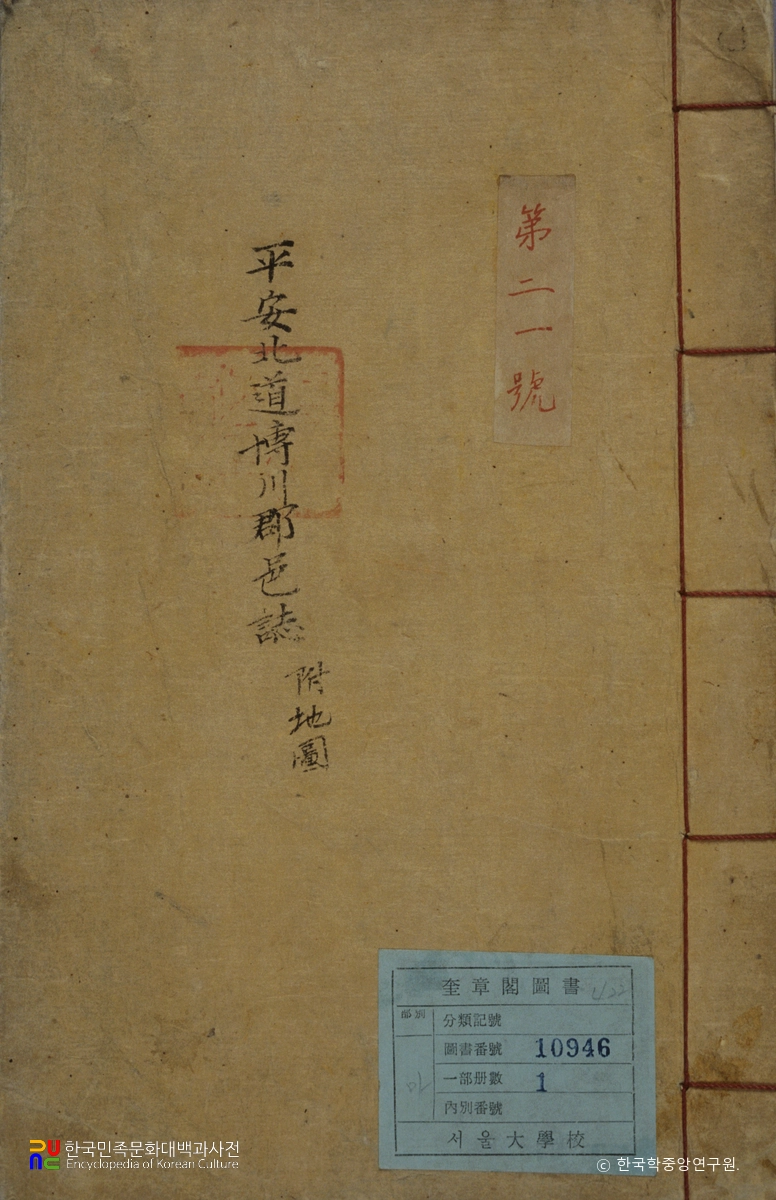 第二一號
平安北道博川郡邑誌
附地圖
奎章閣圖書
部別
分類記號
圖書番號 10946
一部册數 1
內別番號
서울大學校
한국민족문화대백과사전
Encyclopedia of Korean Culture
© 한국학중앙연구원.